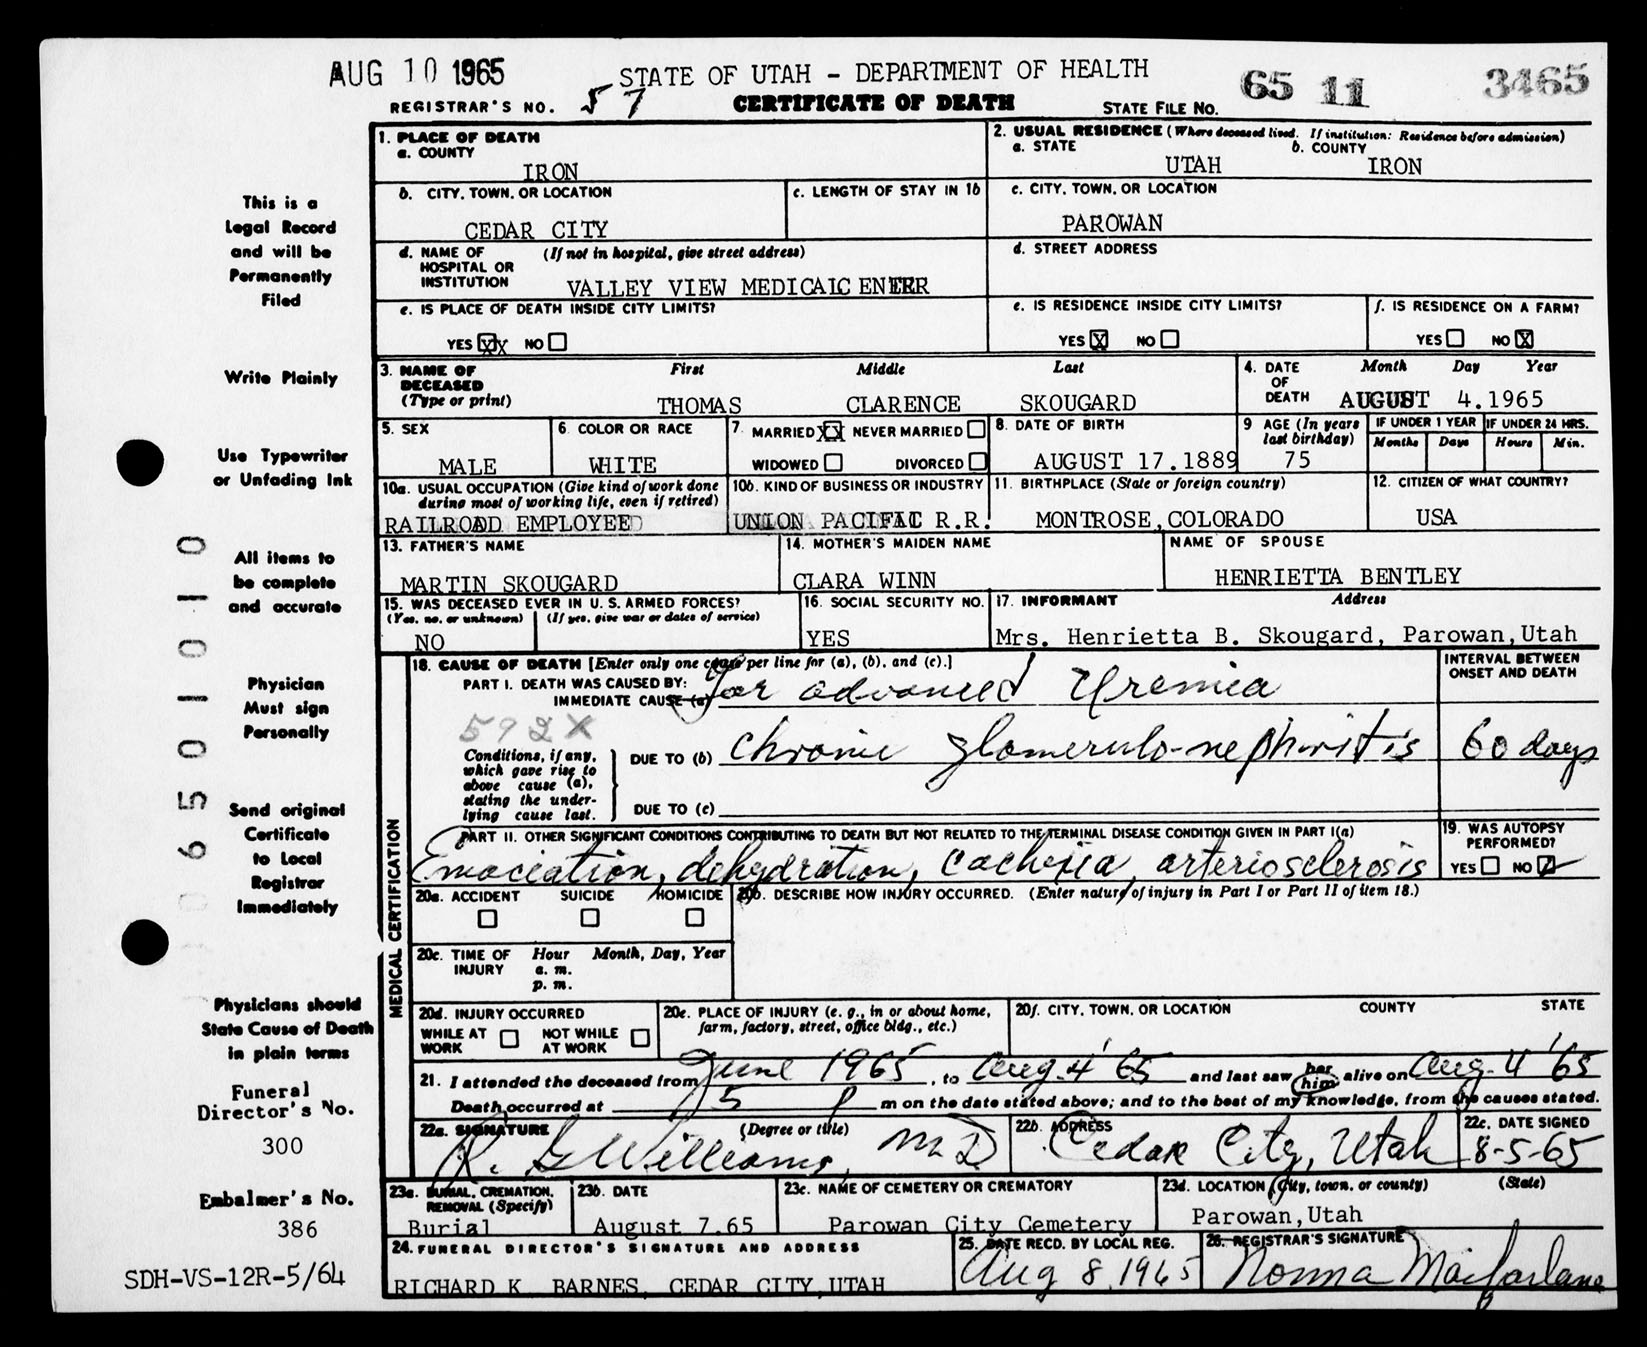 AUG 10 1965
STATE OF UTAH - DEPARTMENT OF HEALTH
65 11 3465
REGISTRAR'S NO. 57
CERTIFICATE OF DEATH
STATE FILE NO.
1. PLACE OF DEATH
a. COUNTY
IRON
2. USUAL RESIDENCE (Where deceased lived. If institution: Residence before admission)
a. STATE
UTAH
b. COUNTY
IRON
b. CITY, TOWN, OR LOCATION
CEDAR CITY
c. LENGTH OF STAY IN 1b
c. CITY, TOWN, OR LOCATION
PAROWAN
d. NAME OF HOSPITAL OR INSTITUTION
(If not in hospital, give street address)
VALLEY VIEW MEDICALCENTER
d. STREET ADDRESS
e. IS PLACE OF DEATH INSIDE CITY LIMITS?
YES XX NO
e. IS RESIDENCE INSIDE CITY LIMITS?
YES X NO
f. IS RESIDENCE ON A FARM?
YES NO X
3. NAME OF DECEASED
(Type or print)
First Middle Last
THOMAS CLARENCE SKOUGARD
4. DATE OF DEATH
Month Day Year
AUGUST 4.1965
5. SEX
MALE
6. COLOR OR RACE
WHITE
7. MARRIED XX NEVER MARRIED
WIDOWED DIVORCED
8. DATE OF BIRTH
AUGUST 17.1889
9 AGE (In years last birthday)
75
IF UNDER 1 YEAR
Months Days
IF UNDER 24 HRS.
Hours Min.
10a. USUAL OCCUPATION (Give kind of work done during most of working life, even if retired)
RAILROAD EMPLOYEE
10b. KIND OF BUSINESS OR INDUSTRY
UNION PACIFIC R.R.
11. BIRTHPLACE (State or foreign country)
MONTROSE,COLORADO
12. CITIZEN OF WHAT COUNTRY?
USA
13. FATHER'S NAME
MARTIN SKOUGARD
14. MOTHER'S MAIDEN NAME
CLARA WINN
NAME OF SPOUSE
HENRIETTA BENTLEY
15. WAS DECEASED EVER IN U.S. ARMED FORCES?
(Yes, no, or unknown) (If yes, give war or dates of service)
NO
16. SOCIAL SECURITY NO.
YES
17. INFORMANT Address
Mrs. Henrietta B. Skougard, Parowan,Utah
MEDICAL CERTIFICATION
18. CAUSE OF DEATH [Enter only one cause per line for (a), (b), and (c).]
PART I. DEATH WAS CAUSED BY:
IMMEDIATE CAUSE (a) Far advanced Uremia
592X
INTERVAL BETWEEN ONSET AND DEATH
Conditions, if any, which gave rise to above cause (a), stating the underlying cause last.
DUE TO (b) Chronic glomerulo-nephritis
60 days
DUE TO (c)
PART II. OTHER SIGNIFICANT CONDITIONS CONTRIBUTING TO DEATH BUT NOT RELATED TO THE TERMINAL DISEASE CONDITION GIVEN IN PART I(a)
Emaciation, dehydration, cachexia, arteriosclerosis
19. WAS AUTOPSY PERFORMED?
YES NO
20a. ACCIDENT SUICIDE HOMICIDE
20b. DESCRIBE HOW INJURY OCCURRED. (Enter nature of injury in Part I or Part II of item 18.)
20c. TIME OF INJURY
Hour Month, Day, Year
a. m.
p. m.
20d. INJURY OCCURRED
WHILE AT WORK NOT WHILE AT WORK
20e. PLACE OF INJURY (e. g., in or about home, farm, factory, street, office bldg., etc.)
20f. CITY, TOWN, OR LOCATION COUNTY STATE
21. I attended the deceased from June 1965, to Aug. 4 '65 and last saw her him alive on Aug. 4 '65
Death occurred at 5 P m on the date stated above; and to the best of my knowledge, from the causes stated.
22a. SIGNATURE (Degree or title)
R. G Williams, M D
22b. ADDRESS
Cedar City, Utah
22c. DATE SIGNED
8-5-65
23a. BURIAL, CREMATION, REMOVAL (Specify)
Burial
23b. DATE
August 7.65
23c. NAME OF CEMETERY OR CREMATORY
Parowan City Cemetery
23d. LOCATION (City, town, or county) (State)
Parowan,Utah
24. FUNERAL DIRECTOR'S SIGNATURE AND ADDRESS
RICHARD K. BARNES, CEDAR CITY,UTAH
25. DATE RECD. BY LOCAL REG.
Aug 8, 1965
26. REGISTRAR'S SIGNATURE
Nonna Macfarlane
This is a
Legal Record
and will be
Permanently
Filed
Write Plainly
Use Typewriter
or Unfading Ink
All items to
be complete
and accurate
Physician
Must sign
Personally
Send original
Certificate
to Local
Registrar
Immediately
Physicians should
State Cause of Death
in plain terms
Funeral
Director's No.
300
Embalmer's No.
386
SDH-VS-12R-5/64
0650101010